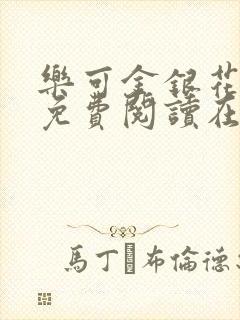 樂可金銀花
免費閱讀在
馬丁·布倫德